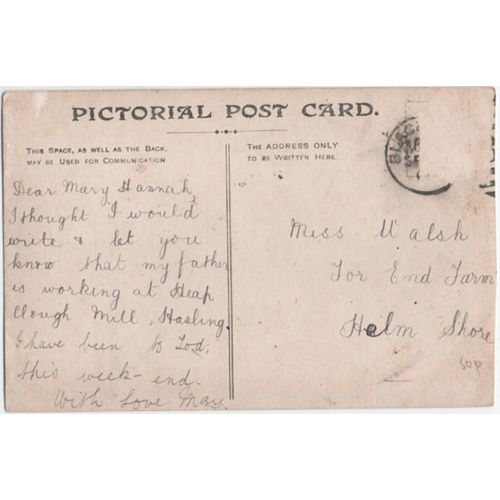 PICTORIAL POST CARD.
THIS SPACE, AS WELL AS THE BACK,
MAY BE USED FOR COMMUNICATION
THE ADDRESS ONLY
TO BE WRITTEN HERE.
Dear Mary Hannah,
I thought I would
write & let you
know that my father
is working at Heap
Clough Mill, Hasling.
I have been to Tod.
this week-end.
With Love May.
Miss Walsh
Tor End Farm
Helm Shore
50p